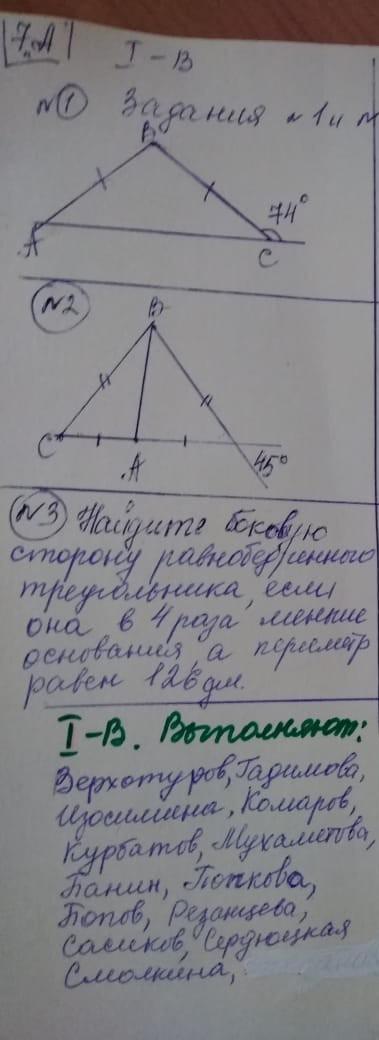 7 "А"
I - В
№1 Задания №1 и №
B
74°
A
C
№2
B
C
A
45°
№3 Найдите боковую
сторону равнобедренного
треугольника, если
она в 4 раза меньше
основания, а периметр
равен 126 дм.
I-В. Выполняют:
Верхотуров, Гадимова,
Изосимина, Комаров,
Курбатов, Мухаметова,
Панин, Попкова,
Попов, Резанцева,
Сасиков, Сердюцкая
Смолкина,